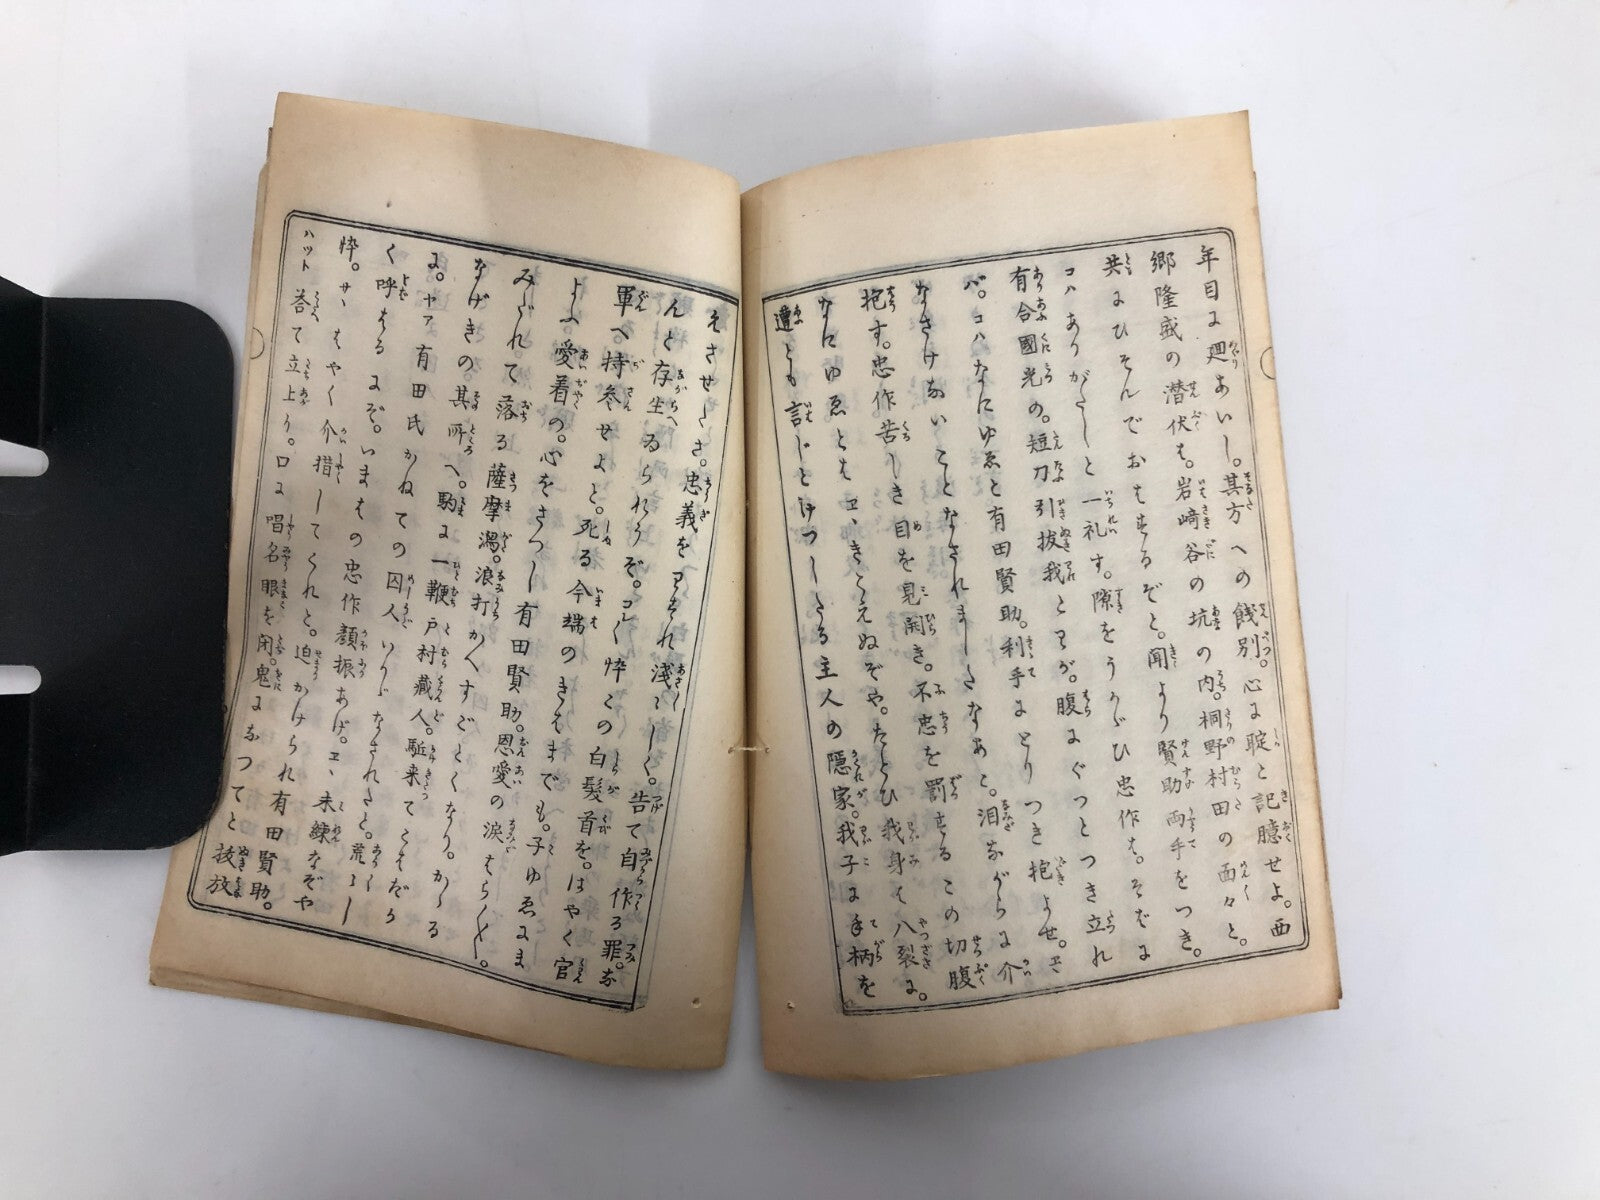 年目に廻りあいし。其方への餞別。心に聢と記臆せよ。西
郷隆盛の潜伏も。岩﨑谷の坑の内。桐野村田の面々と。
共にひそんでおはするぞと。聞より賢助両手をつき。
コハありがたしと一礼す。隙をうかゞひ忠作は。そばに
有合國光の。短刀引抜我とわが。腹にぐつとつき立れ
バ。コハなにゆゑと有田賢助。利手にとりつき抱よせ。
なさけないことなされましたなあと。泪ながらに介
抱す。忠作苦しき目を見開き。不忠を罰するこの切腹
なにゆゑとはエヽきこえぬぞや。たとひ我身は八裂に。
遭とも言じとけつしたる主人の隠家。我子に手柄を
させたさ。忠義をわすれ淺々しく。告て自作る罪。な
んと存生ゐられうぞ。コレ忰この白髪首を。はやく官
軍へ持参せよと。死る今端のきはまでも。子ゆゑにま
よふ愛着の。心をさつし有田賢助。恩愛の涙はら〱。
みだれて落る薩摩潟。浪打かへすごとくなり。かゝる
なげきの其所へ。駒に一鞭戸村藏人。駈来てこはだか
に。ヤア有田氏かねての囚人いかゞなされたと。荒々し
く呼はるにぞ。いまはの忠作顔振あげ。エヽ未練なぞや
忰。サヽはやく介措してくれと。迫かけられ有田賢助。
ハット荅て立上り。口に唱名眼を閉。鬼になつてと抜放